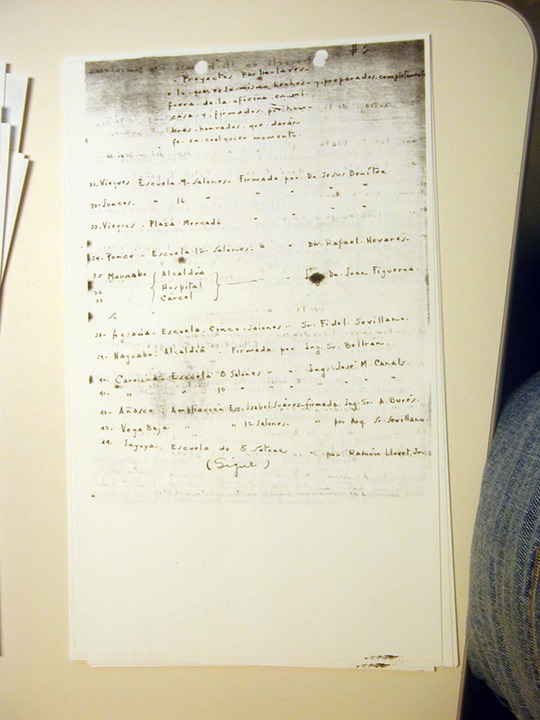 # 2
- Proyectos Particulares -
lo que yo da misma hechos y preparados completamente
fuera de la oficina en mi
casa y firmados por hom-
bres honrados que darán
fe en cualquier momento.
31. Vieques Escuela 9 Salones - Firmada por Dn. Jesus Benítez
32- Juncos. " 16 " " " " " "
33. Vieques - Plaza Mercado " " "
34. Ponce - Escuela 12 Salones " " Dn. Rafael Nevares.
35 Maunabo { Alcaldía
36 Hospital } " " Dn. Juan Figueroa
37 Carcel
38- Aguada - Escuela Cinco Salones " Sr. Fidel Sevillano.
39. Naguabo - Alcaldía - Firmada por Ing. Sr. Beltrán.
40. Carolina - Escuela 8 Salones " " Ing. José M. Canals.
41. " " 10 " " " " " "
42. Añasco - Ampliación Esc. Isabel Suárez - firmada Ing. Sr. A. Burés.
43. Vega Baja " " 12 Salones. " por Arq. Sr. Sevillano.
44. Jayuya. Escuela de 5 Salones " por Ramón Lloret, Jr.
(Sigue)